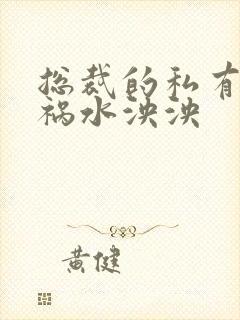 总裁的私有
祸水泱泱
黄健